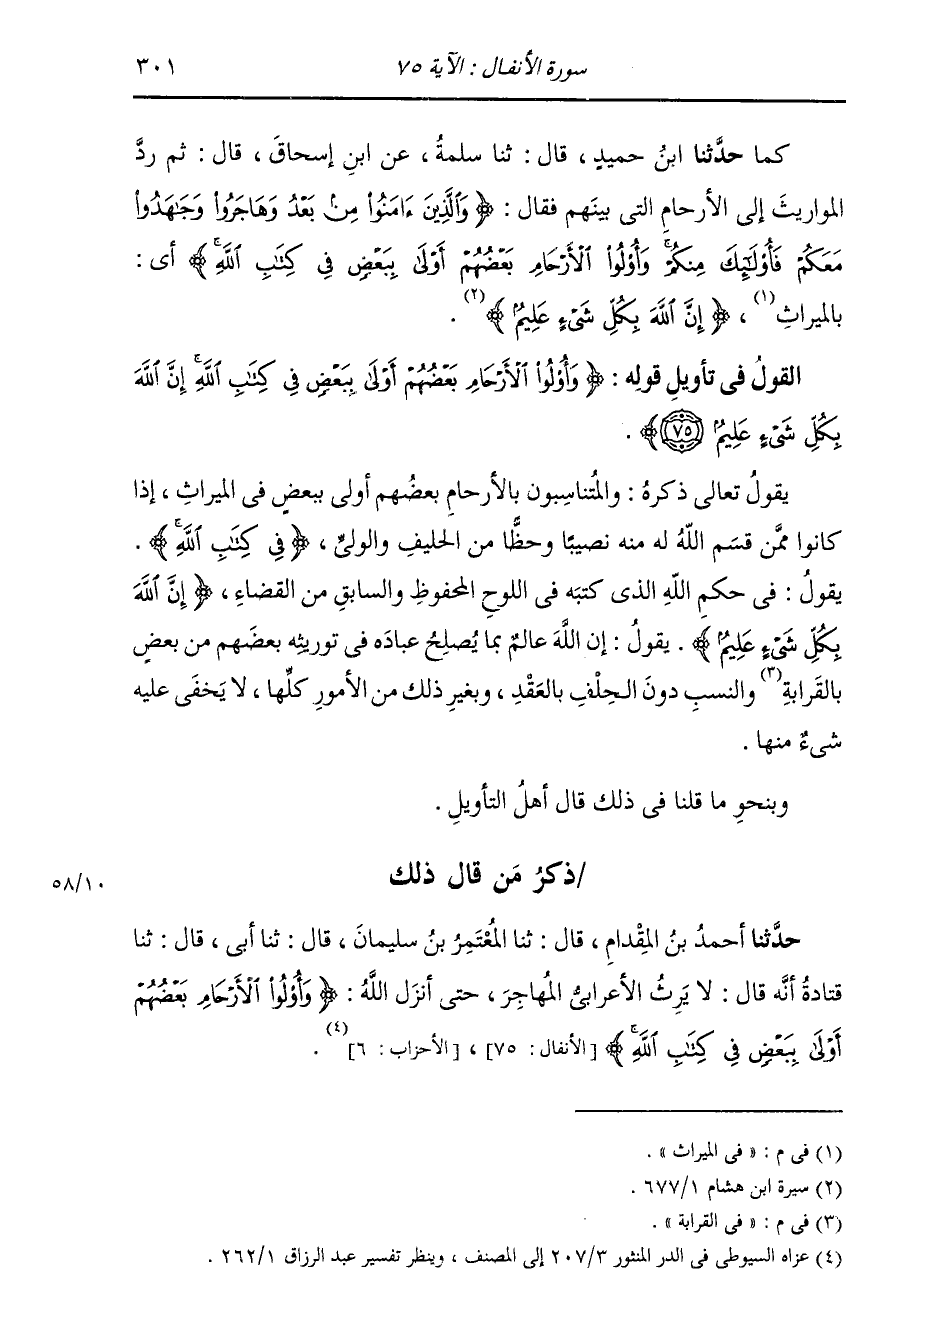 سورة الأنفال : الآية ٧٥ ٣٠١
كما حدَّثنا ابنُ حميدٍ ، قال : ثنا سلمةُ ، عن ابنِ إسحاقَ ، قال : ثم ردَّ
المواريثَ إلى الأرحامِ التى بينَهم فقال : ﴿ وَٱلَّذِينَ ءَامَنُوا۟ مِنۢ بَعْدُ وَهَاجَرُوا۟ وَجَٰهَدُوا۟
مَعَكُمْ فَأُو۟لَٰٓئِكَ مِنكُمْ ۚ وَأُو۟لُوا۟ ٱلْأَرْحَامِ بَعْضُهُمْ أَوْلَىٰ بِبَعْضٍ فِى كِتَٰبِ ٱللَّهِ ۚ ﴾ أى :
بالميراثِ(١) ، ﴿ إِنَّ ٱللَّهَ بِكُلِّ شَىْءٍ عَلِيمٌۢ ﴾(٢) .
القولُ فى تأويلِ قولِه : ﴿ وَأُو۟لُوا۟ ٱلْأَرْحَامِ بَعْضُهُمْ أَوْلَىٰ بِبَعْضٍ فِى كِتَٰبِ ٱللَّهِ ۚ إِنَّ ٱللَّهَ
بِكُلِّ شَىْءٍ عَلِيمٌۢ ٧٥ ﴾ .
يقولُ تعالى ذكرهُ : والمُتناسِبون بالأرحامِ بعضُهم أولى ببعضٍ فى الميراثِ ، إذا
كانوا ممَّن قسَم اللَّهُ له منه نصيبًا وحظًّا من الحليفِ والولىِّ ، ﴿ فِى كِتَٰبِ ٱللَّهِ ۚ ﴾ .
يقولُ : فى حكمِ اللَّهِ الذى كتبَه فى اللوحِ المحفوظِ والسابقِ من القضاءِ ، ﴿ إِنَّ ٱللَّهَ
بِكُلِّ شَىْءٍ عَلِيمٌۢ ﴾ . يقولُ : إن اللَّهَ عالمٌ بما يُصلِحُ عبادَه فى توريثِه بعضَهم من بعضٍ
بالقَرابةِ(٣) والنسبِ دونَ الحِلْفِ بالعَقْدِ ، وبغيرِ ذلك من الأمورِ كلِّها ، لا يَخفَى عليه
شىءٌ منها .
وبنحوِ ما قلنا فى ذلك قال أهلُ التأويلِ .
/ذكرُ مَن قال ذلك
٥٨/١٠
حدَّثنا أحمدُ بنُ المِقْدامِ ، قال : ثنا المُعْتَمِرُ بنُ سليمانَ ، قال : ثنا أبى ، قال : ثنا
قتادةُ أنَّه قال : لا يَرِثُ الأعرابىُّ المُهاجِرَ ، حتى أنزَل اللَّهُ : ﴿ وَأُو۟لُوا۟ ٱلْأَرْحَامِ بَعْضُهُمْ
أَوْلَىٰ بِبَعْضٍ فِى كِتَٰبِ ٱللَّهِ ۚ ﴾ [الأنفال : ٧٥] ، [الأحزاب : ٦](٤) .
(١) فى م : « فى الميراث » .
(٢) سيرة ابن هشام ٦٧٧/١ .
(٣) فى م : « فى القرابة » .
(٤) عزاه السيوطى فى الدر المنثور ٢٠٧/٣ إلى المصنف ، وينظر تفسير عبد الرزاق ٢٦٢/١ .